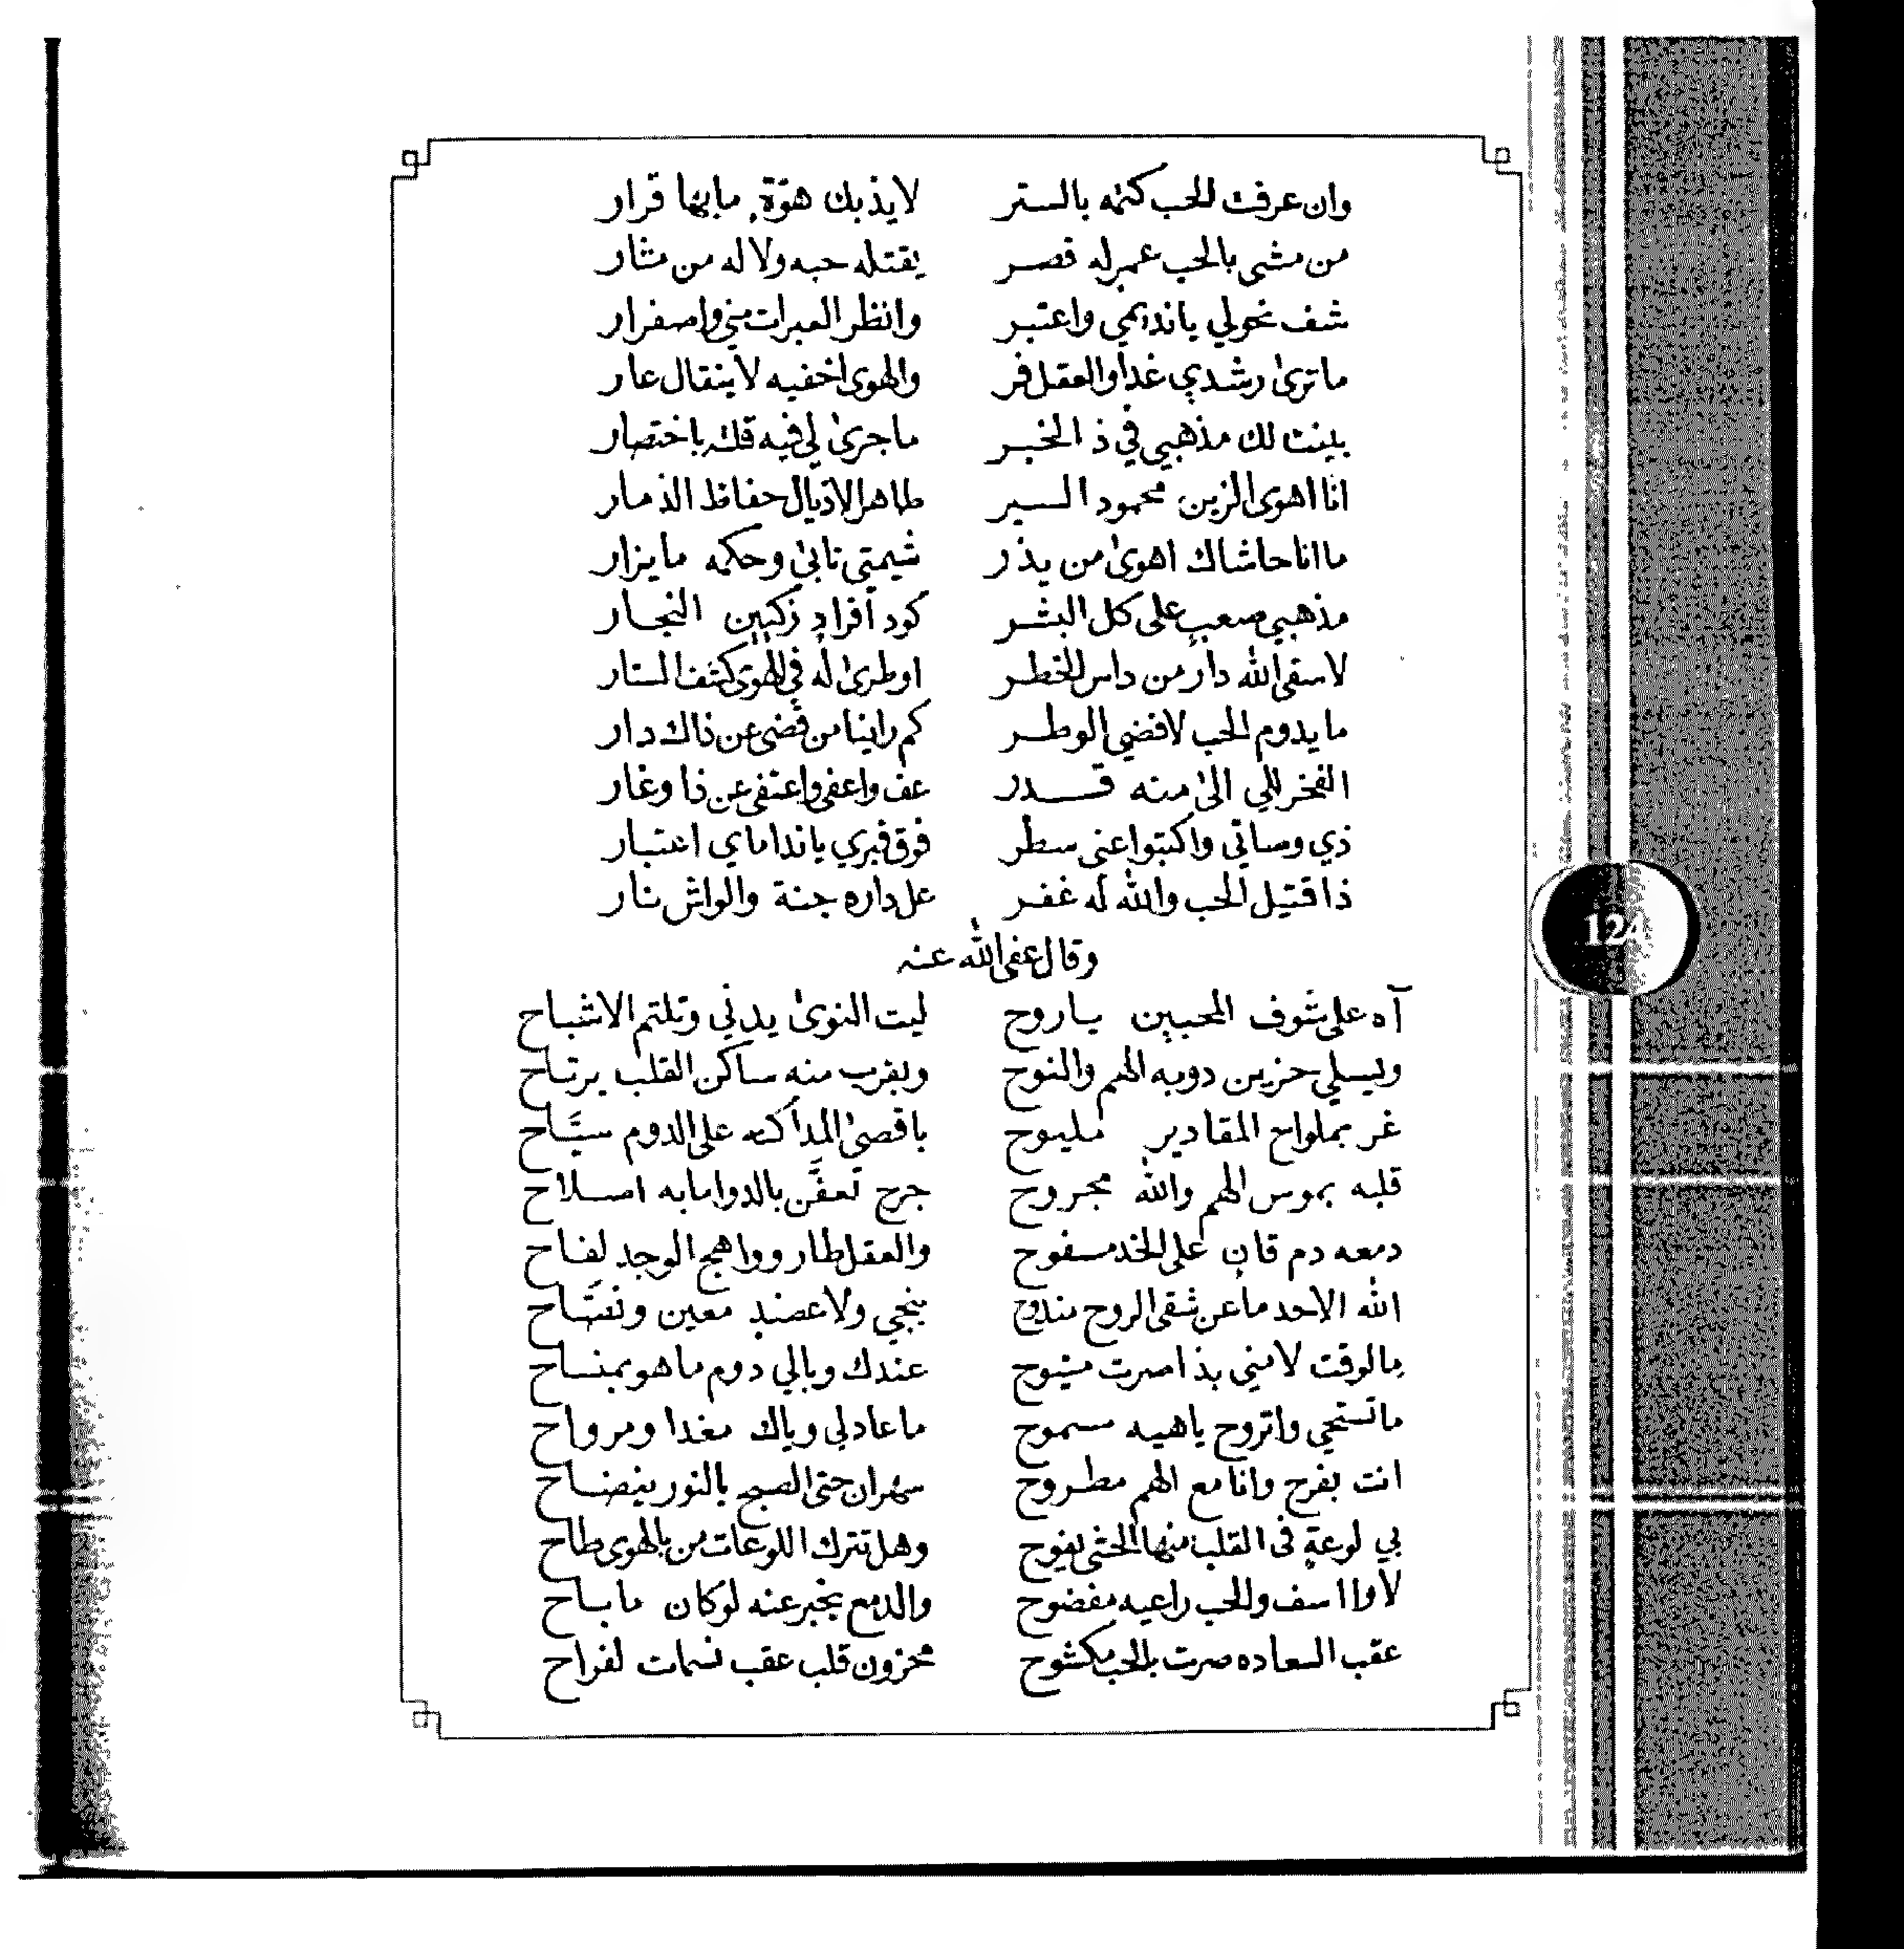 وان عرفت الحب كتمه بالستر لايذبك هوّةٍ مابها قرار
من مشى بالحب عمرٍ له قصر يقتله حبه ولا له من مثار
شف نحولي يانديمي واعتبر وانظر العبرات مني واصفرار
ماترىٰ رشدي غدا والعقل فر والهوى اخفيه لاينقال عار
بينت لك مذهبي في ذ الخبر ماجرىٰ لي فيه قلته باختصار
انا اهوى الزين محمود السير طاهر الاذيال حفاظ الذمار
ما انا حاشاك اهوىٰ من يذر شيمتي تابىٰ وحكمه مايزار
مذهبي صعبٍ على كل البشر كود أفرادٍ زكيين النجار
لاسقى الله دار من داس الخطر اوطرىٰ له في الهوى كشف الستار
مايدوم الحب لاقضي الوطر كم راينا من قضى عن ذاك دار
الفخر للي الىٰ منه قدر عف واعفى واعتفى عن ذا وغار
ذي وساتي واكتبوا عني سطر فوق قبري يانداماي اعتبار
ذا قتيل الحب والله له غفر عل داره جنة والواش نار
وقال عفى الله عنه
آه على شوف المحبين ياروح ليت النوىٰ يدني وتلتم الاشباح
ويسلي حزين دوبه الهم والنوح وبقرب منه ساكن القلب يرتاح
غر بملواح المقادير مليوح باقصىٰ المدا كنه على الدوم سبَّاح
قلبه بموس الهم والله مجروح جرح تعفَّن بالدوا مابه اصلاح
دمعه دم قانٍ على الخد مسفوح والعقل طار وواهج الوجد لفاح
الله الاحد ماعن شقى الروح مندوح ينجي ولاعضيدٍ معين ونفَّاح
مالوقت لامني بذا صرت ميتوح عندك وبالي دوم ماهو بمنساح
ماتستحي واتروح ياهيه مسموح ماعادلي وياك مغدا ومرواح
انت بفرح وانا مع الهم مطروح سهران حتى الصبح بالنور ينضاح
بي لوعةٍ في القلب منها الحشى يفوح وهل تترك اللوعات من بالهوى طاح
لاوا اسف والحب راعيه مفضوح والدمع يخبر عنه لوكان ماباح
عقب السعاده صرت بالحب مكشوح محزون قلب عقب نسمات لفراح
124